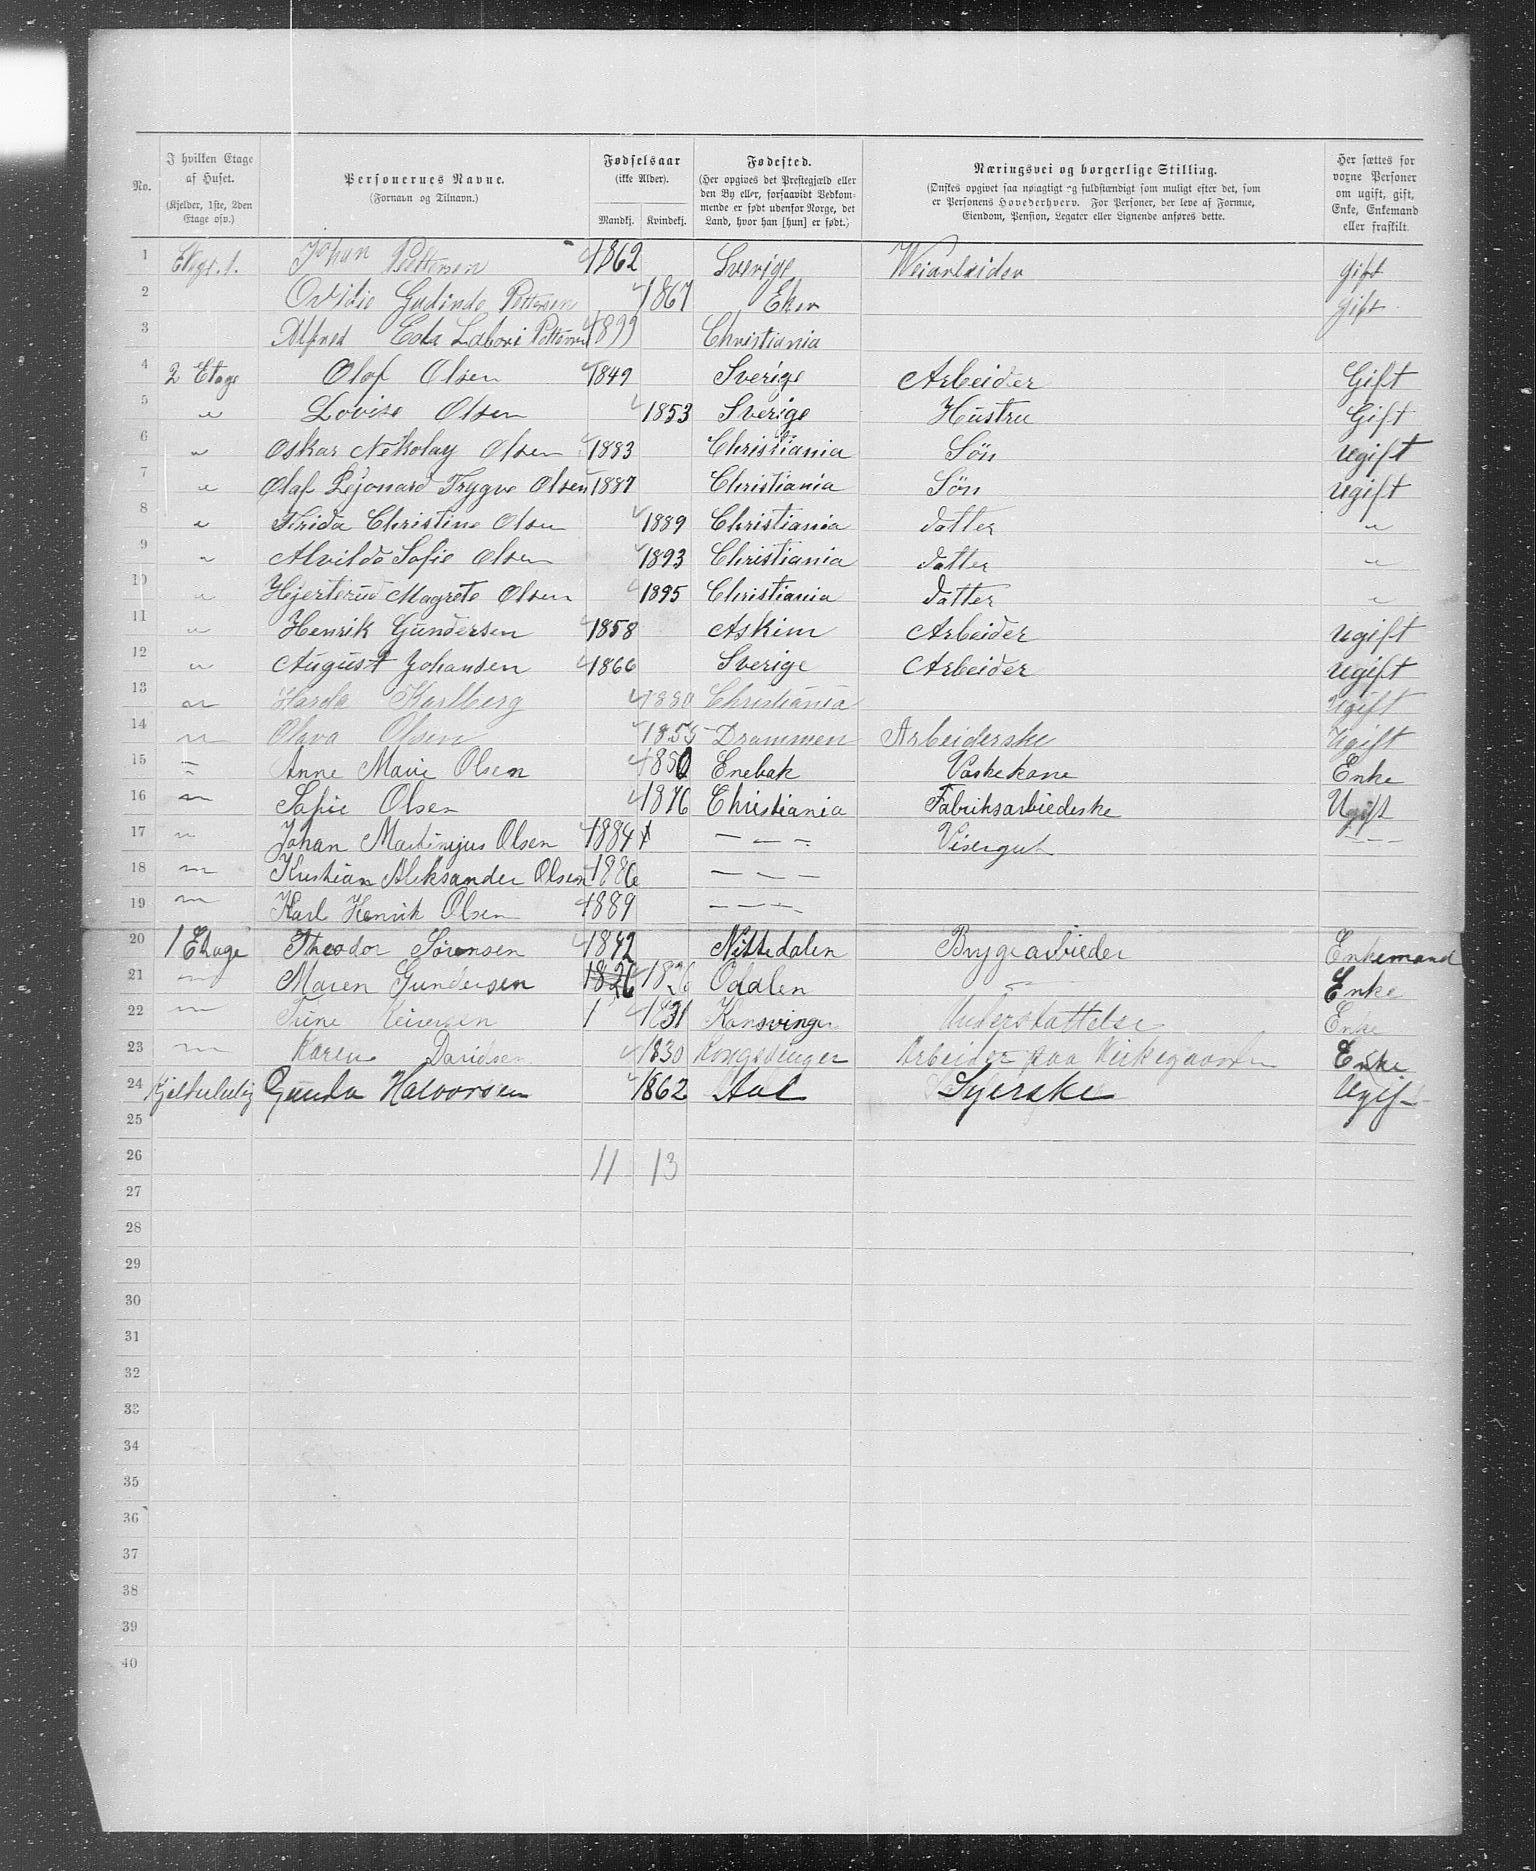 No.
I hvilken Etage af Huset. (Kjelder, 1ste, 2den Etage osv.)
Personernes Navne. (Fornavn og Tilnavn.)
Fødselsaar (ikke Alder). Mandkj. Kvindekj.
Fødested. (Her opgives det Prestegjæld eller den By eller, forsaavidt Vedkommende er født udenfor Norge, det Land, hvor han [hun] er født.)
Næringsvei og borgerlige Stilling. (Ønskes opgivet saa nøiagtigt og fuldstændigt som muligt efter det, som er Personens Hovederhverv. For Personer, der leve af Formue, Eiendom, Pension, Legater eller Lignende anføres dette.
Her sættes for voxne Personer om ugift, gift, Enke, Enkemand eller fraskilt.
1 1. Johan Pettersen 1862 Sverige Veiarbeider gift
2 Ovidie Gudinde Pettersen 1867 Eker gift
3 Alfred Pettersen 1899 Christiania
4 2 Etage Olaf Olsen 1849 Sverige Arbeider Gift
5 " Lovise Olsen 1853 Sverige Hustru Gift
6 " Oskar Nekolay Olsen 1883 Christiania Søn ugift
7 " Olaf Lejonard Trygve Olsen 1887 Christiania Søn ugift
8 " Frida Christine Olsen 1889 Christiania datter "
9 " Alvilda Sofie Olsen 1893 Christiania datter "
10 " Hjerterud Magrete Olsen 1895 Christiania datter "
11 " Henrik Gundersen 1858 Askim Arbeider ugift
12 " August Johansen 1866 Sverige Arbeider ugift
13 " Harda Karlberg 1880 Christiania Ugift
14 " Olava Olsen 1855 Drammen Arbeiderske Ugift
15 " Anne Marie Olsen 1850 Enebak Vaskekone Enke
16 " Sofie Olsen 1876 Christiania Fabriksarbiedeske Ugift
17 " Johan Martinius Olsen 1884 — " — Visergut — " —
18 " Kristian Aleksander Olsen 1886 — " —
19 " Karl Henrik Olsen 1889 — " —
20 1 Etage Theodor Sørensen 1842 Nittedalen Brygearbieder Enkemand
21 " Maren Gundersen 1826 1826 Odalen — " — Enke
22 " Trine Iversen 1 1831 Konsvinger Understøttelse Enke
23 " Karen Davidsen 1830 Kongsvinger Arbeider paa Kirkegaarden Enke
24 Gunda Halvorsen 1862 Aal Syerske Ugift
25
26 11 13
27
28
29
30
31
32
33
34
35
36
37
38
39
40